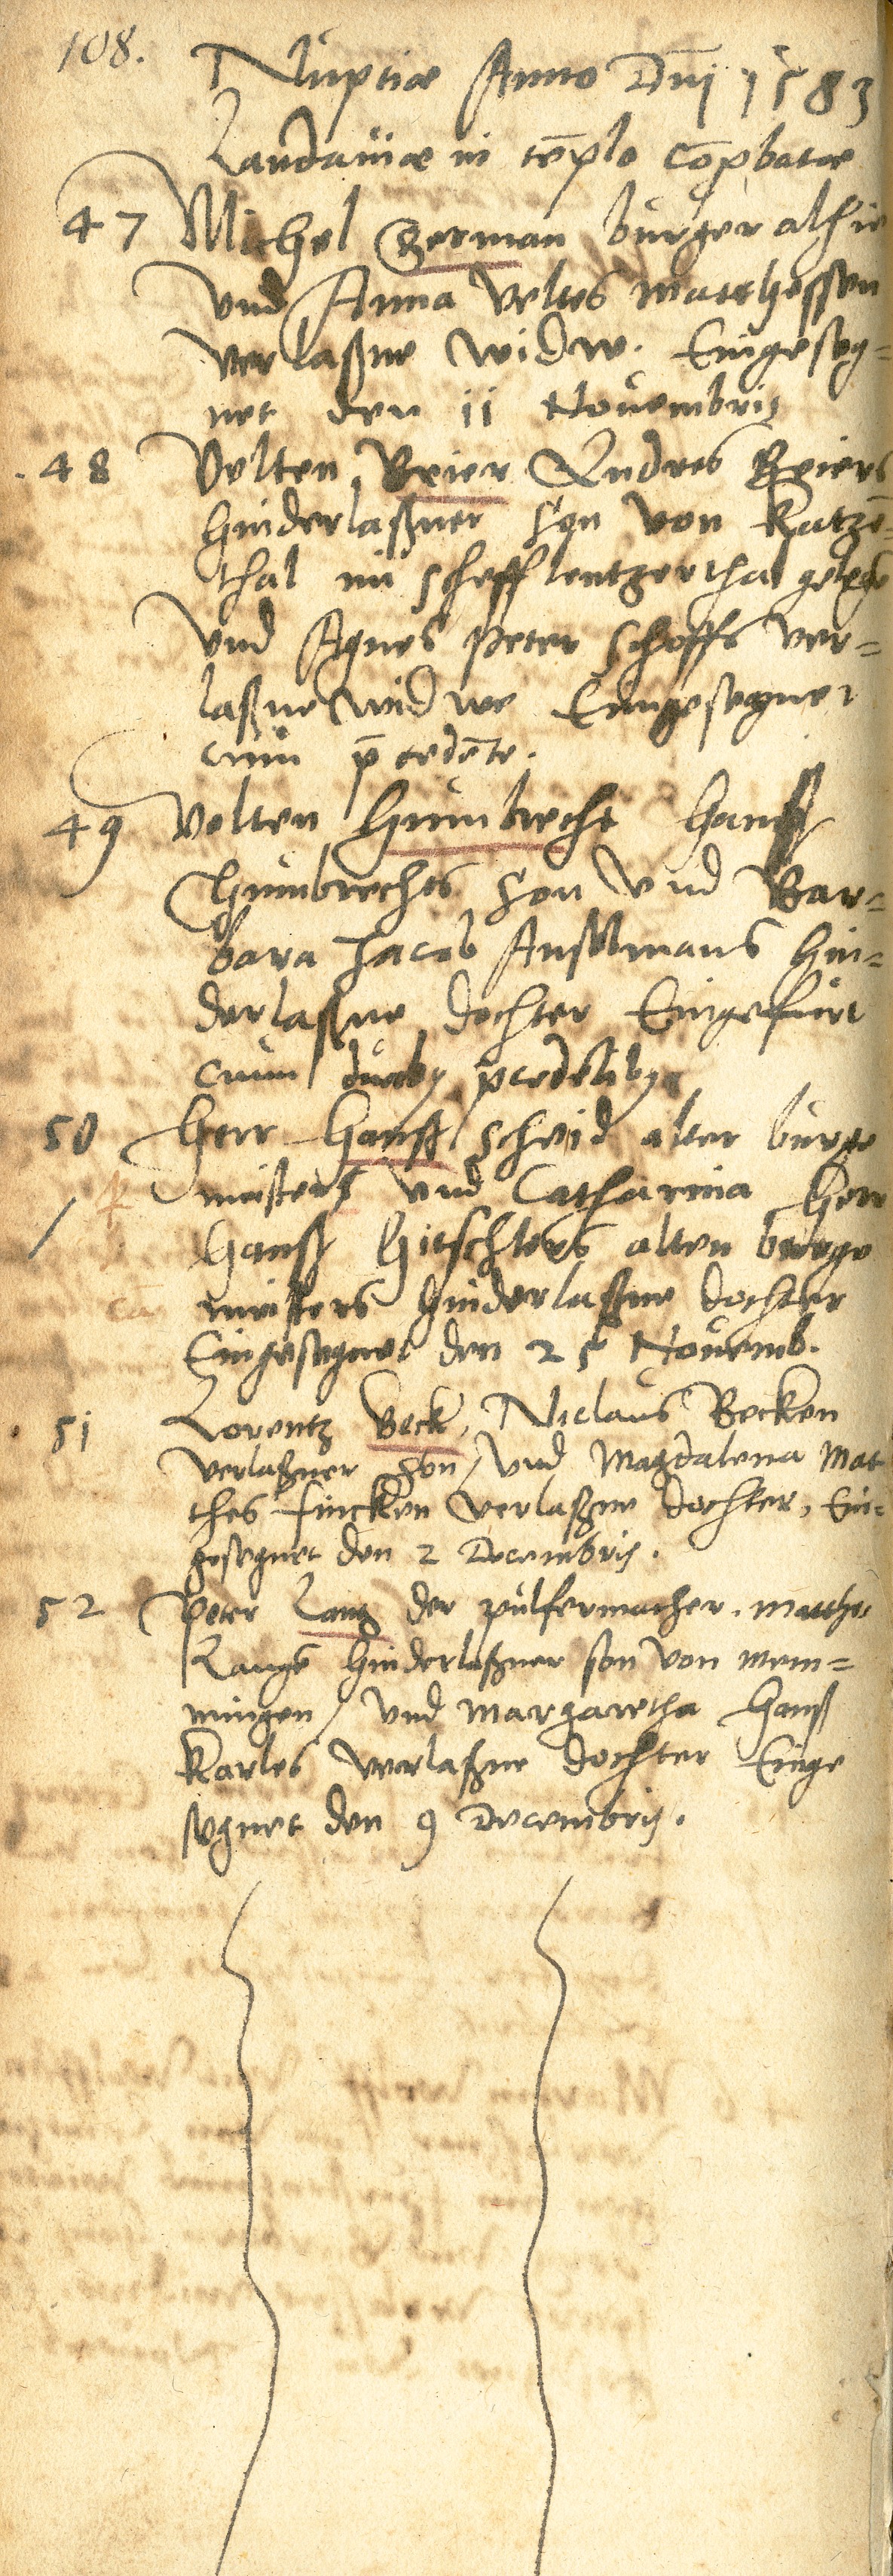 108.
Nuptiæ Anno Dn̄i 1583
Landauiæ in tēplo cōprobatæ
47 Michel German burger alhie
vnd Anna Veltes Matthessen
verlaßne widw. Eingeseg=
net den 11 Nouembris
48 Velten Beier Endres Beiers
hinderlaßner son von Katzē=
thal im Schefflentzerthal
vnd Agnes Peter Schoffs ver=
laßne widwe Eingesegnet
cum p̄cedēte.
49 Velten Humbrecht Hanß
Humbrechts son vnd Bar=
bara Jacob Anselmans hin=
derlaßne dochter Eingefürt
cum
50 Herr Hanß Scheid alter burge
meister vnd Catharina Herr
Hanß Hitschlers alten burge
meisters hinderlaßne dochter
Eingesegnet den 25 Nouemb.
51 Lorentz Beck, Niclaus Becken
verlaßner son / vnd Magdalena Mat
thes Fincken verlaßne dochter, Ein=
gesegnet den 2 Decembris.
52 Peter Lang der pulfermacher. Matthes
Langē hinderlaßner son von Mem=
mingen / vnd Margaretha Hanß
Karles verlaßne dochter Einge
segnet den 9 Decembris.